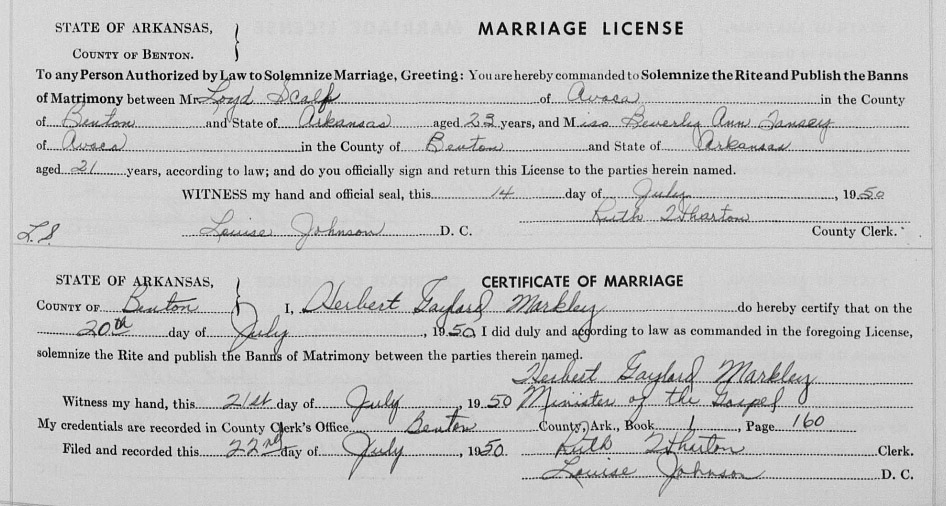 STATE OF ARKANSAS, MARRIAGE LICENSE
COUNTY OF BENTON.
To any Person Authorized by Law to Solemnize Marriage, Greeting: You are hereby commanded to Solemnize the Rite and Publish the Banns
of Matrimony between Mr. Loyd Scalf of Avoca in the County
of Benton and State of Arkansas aged 23 years, and Miss Beverly Ann Tansey
of Avoca in the County of Benton and State of Arkansas
aged 21 years, according to law; and do you officially sign and return this License to the parties herein named.
WITNESS my hand and official seal, this 14 day of July, 1950
Ruth Wharton
L.S. Louise Johnson D. C. County Clerk.
STATE OF ARKANSAS, CERTIFICATE OF MARRIAGE
COUNTY OF Benton I, Herbert Gaylord Markley do hereby certify that on the
20th day of July, 1950, I did duly and according to law as commanded in the foregoing License,
solemnize the Rite and publish the Banns of Matrimony between the parties therein named.
Herbert Gaylord Markley
Witness my hand, this 21st day of July, 1950 Minister of the Gospel
My credentials are recorded in County Clerk's Office Benton County, Ark., Book 1, Page 160
Filed and recorded this 22nd day of July, 1950. Ruth Wharton Clerk.
Louise Johnson D. C.